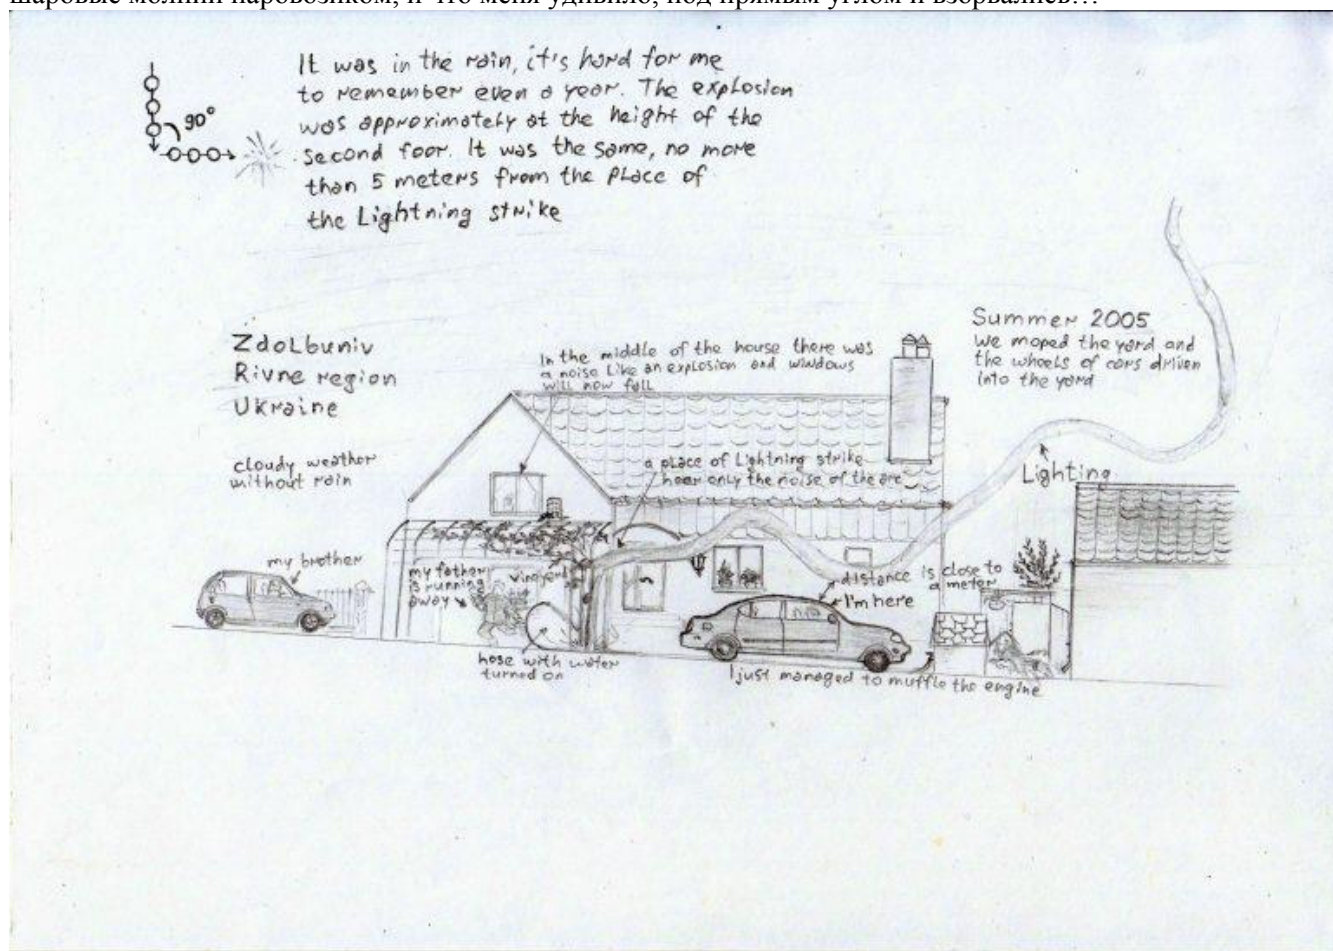 шаровые молнии паровозиком, и что меня удивило, под прямым углом и взорвались…
It was in the rain, it's hard for me
to remember even a year. The explosion
was approximately at the height of the
second foor. It was the same, no more
than 5 meters from the place of
the Lightning strike
90°
Zdolbuniv
Rivne region
Ukraine
cloudy weather
without rain
In the middle of the house there was
a noise like an explosion and windows
will now fall
Summer 2005
we moped the yard and
the wheels of cars driven
into the yard
a place of Lightning strike
hear only the noise of the arc
Lighting
my brother
my father
is running
away
vineyard
distance is close to
a meter
I'm here
hose with water
turned on
I just managed to muffle the engine